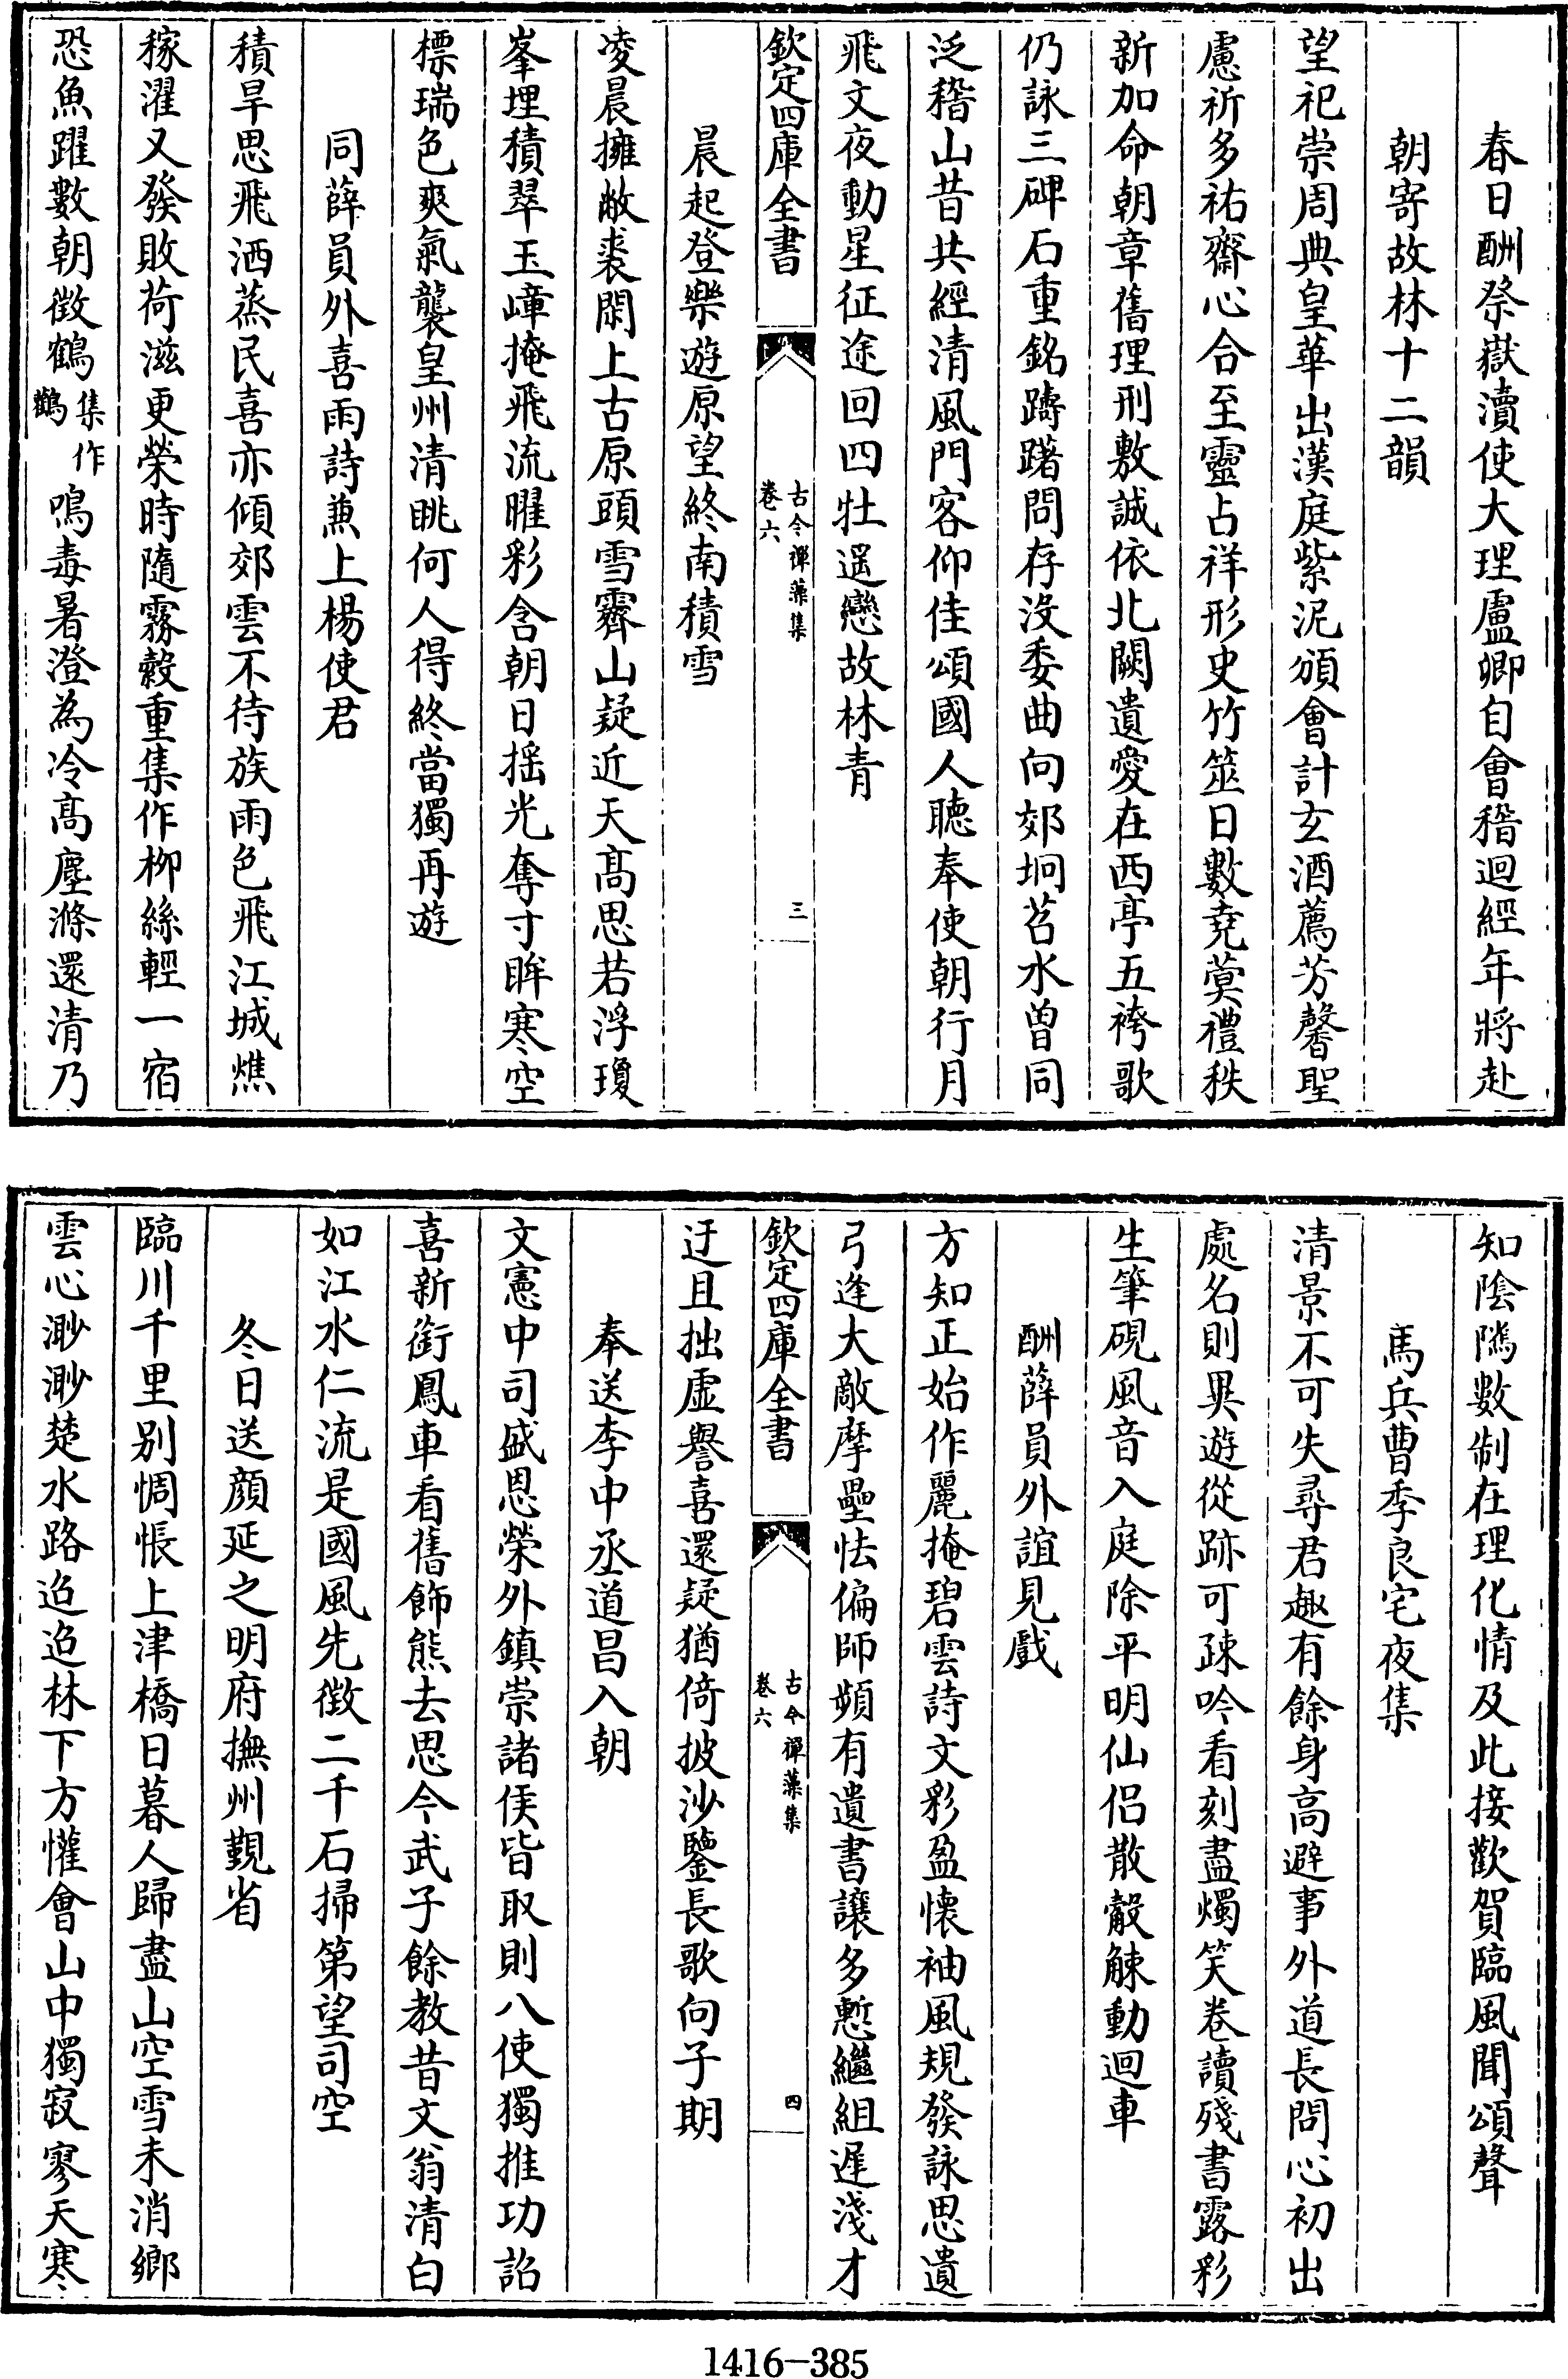 春日酬祭嶽瀆使大理盧卿自會稽迴經年將赴
朝寄故林十二韻
望祀崇周典皇華出漢庭紫泥頒會計玄酒薦芳馨聖
慮祈多祐齋心合至靈占祥形史竹筮日數堯蓂禮秩
新加命朝章舊理刑敷誠依北闕遺愛在西亭五袴歌
仍詠三碑石重銘躊躇問存沒委曲向郊坰苕水曽同
泛稽山昔共經清風門客仰佳頌國人聽奉使朝行月
飛文夜動星征途回四牡遥戀故林青
欽定四庫全書
古今禪藻集
卷六
三
晨起登樂遊原望終南積雪
凌晨擁敝裘閑上古原頭雪霽山疑近天髙思若浮瓊
峯埋積翠玉嶂掩飛流曜彩含朝日揺光奪寸眸寒空
標瑞色爽氣襲皇州清眺何人得終當獨再遊
同薛員外喜雨詩兼上楊使君
積旱思飛洒蒸民喜亦傾郊雲不待族雨色飛江城燋
稼濯又發敗荷滋更榮時隨霧縠重集作柳絲輕一宿
恐魚躍數朝徴鶴集作鸛鳴毒暑澄為冷髙塵滌還清乃
知陰隲數制在理化情及此接歡賀臨風聞頌聲
馬兵曹季良宅夜集
清景不可失尋君趣有餘身高避事外道長問心初出
處名則異遊從跡可疎吟看刻盡燭笑卷讀殘書露彩
生筆硯風音入庭除平明仙侣散觳觫動迴車
酬薛員外誼見戲
方知正始作麗掩碧雲詩文彩盈懷袖風規發詠思遺
弓逢大敵摩壘怯偏師頻有遺書讓多慙繼組遲淺才
欽定四庫全書
古今禪藻集
卷六
四
迂且拙虚譽喜還疑猶倚披沙鑒長歌向子期
奉送李中丞道昌入朝
文憲中司盛恩榮外鎮崇諸侯皆取則八使獨推功詔
喜新銜鳳車看舊飾熊去思今武子餘教昔文翁清白
如江水仁流是國風先徴二千石掃第望司空
冬日送顔延之明府撫州覲省
臨川千里别惆悵上津橋日暮人歸盡山空雪未消鄉
雲心渺渺楚水路迢迢林下方懽會山中獨寂寥天寒
1416-385